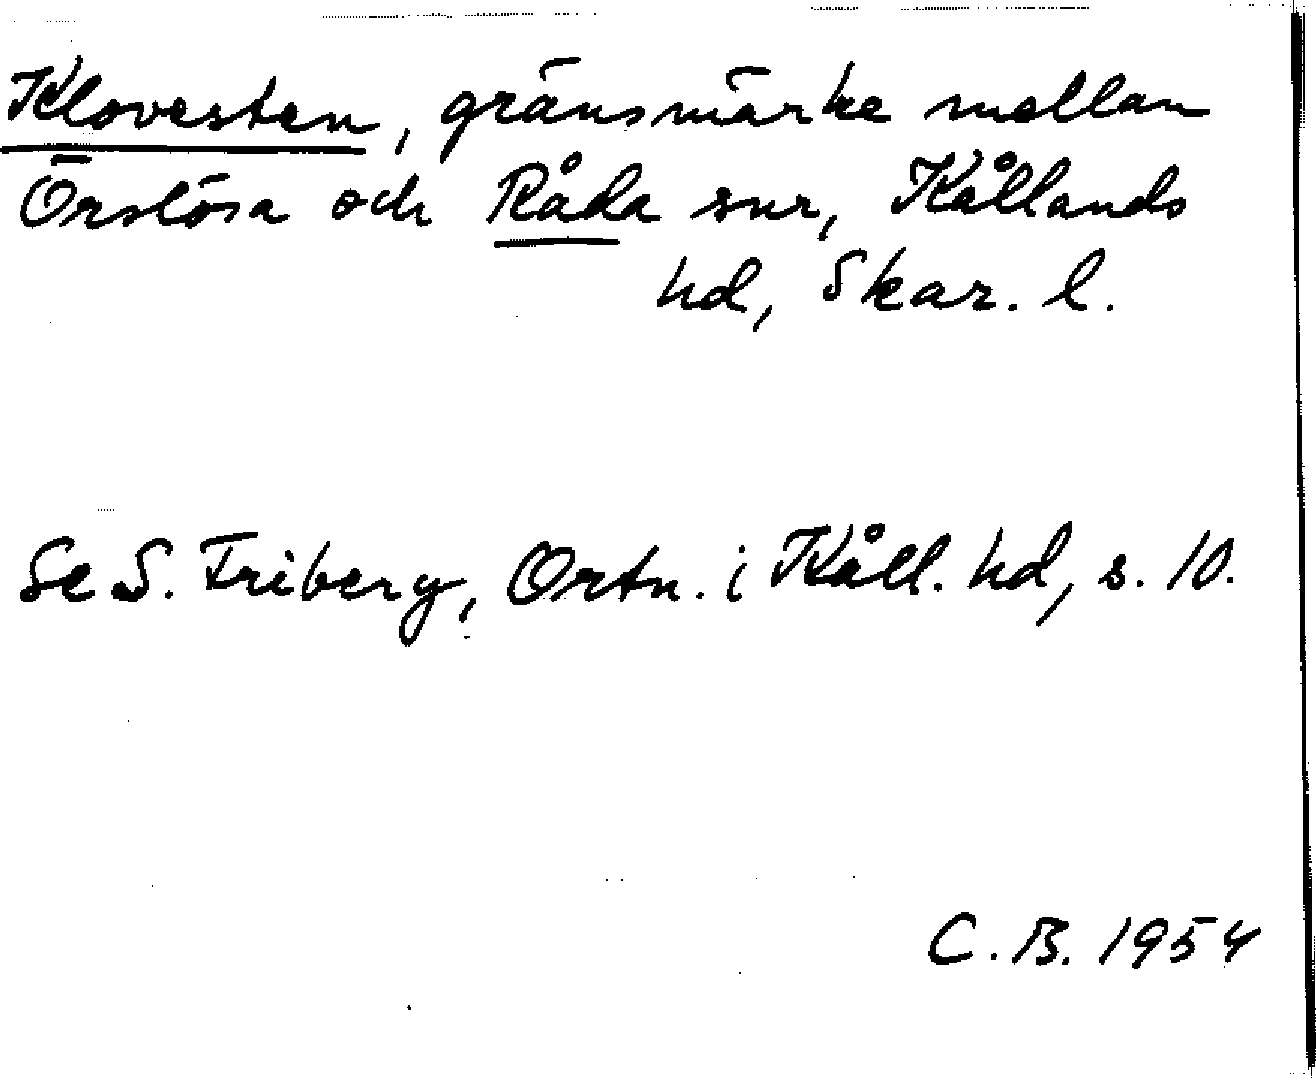 Klovesten, gränsmärke mellan
Örslösa och Råda snr, Kållands
hd, Skar. l.
Se S. Friberg, Ortn. i Kåll. hd, s. 10.
C. B. 1954